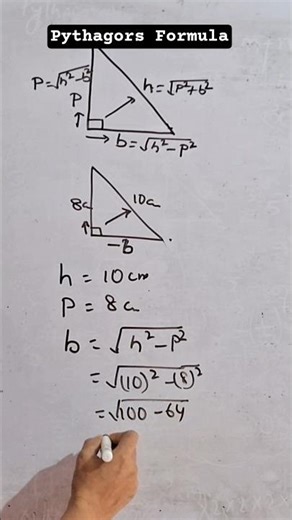 Pythagors Formula
P=√h²-b²
h=√P²+b²
P
b=√h²-P²
8c
10c
-B
h = 10cm
P = 8c
b = √h²-P²
= √(10)²-(8)²
= √100-64